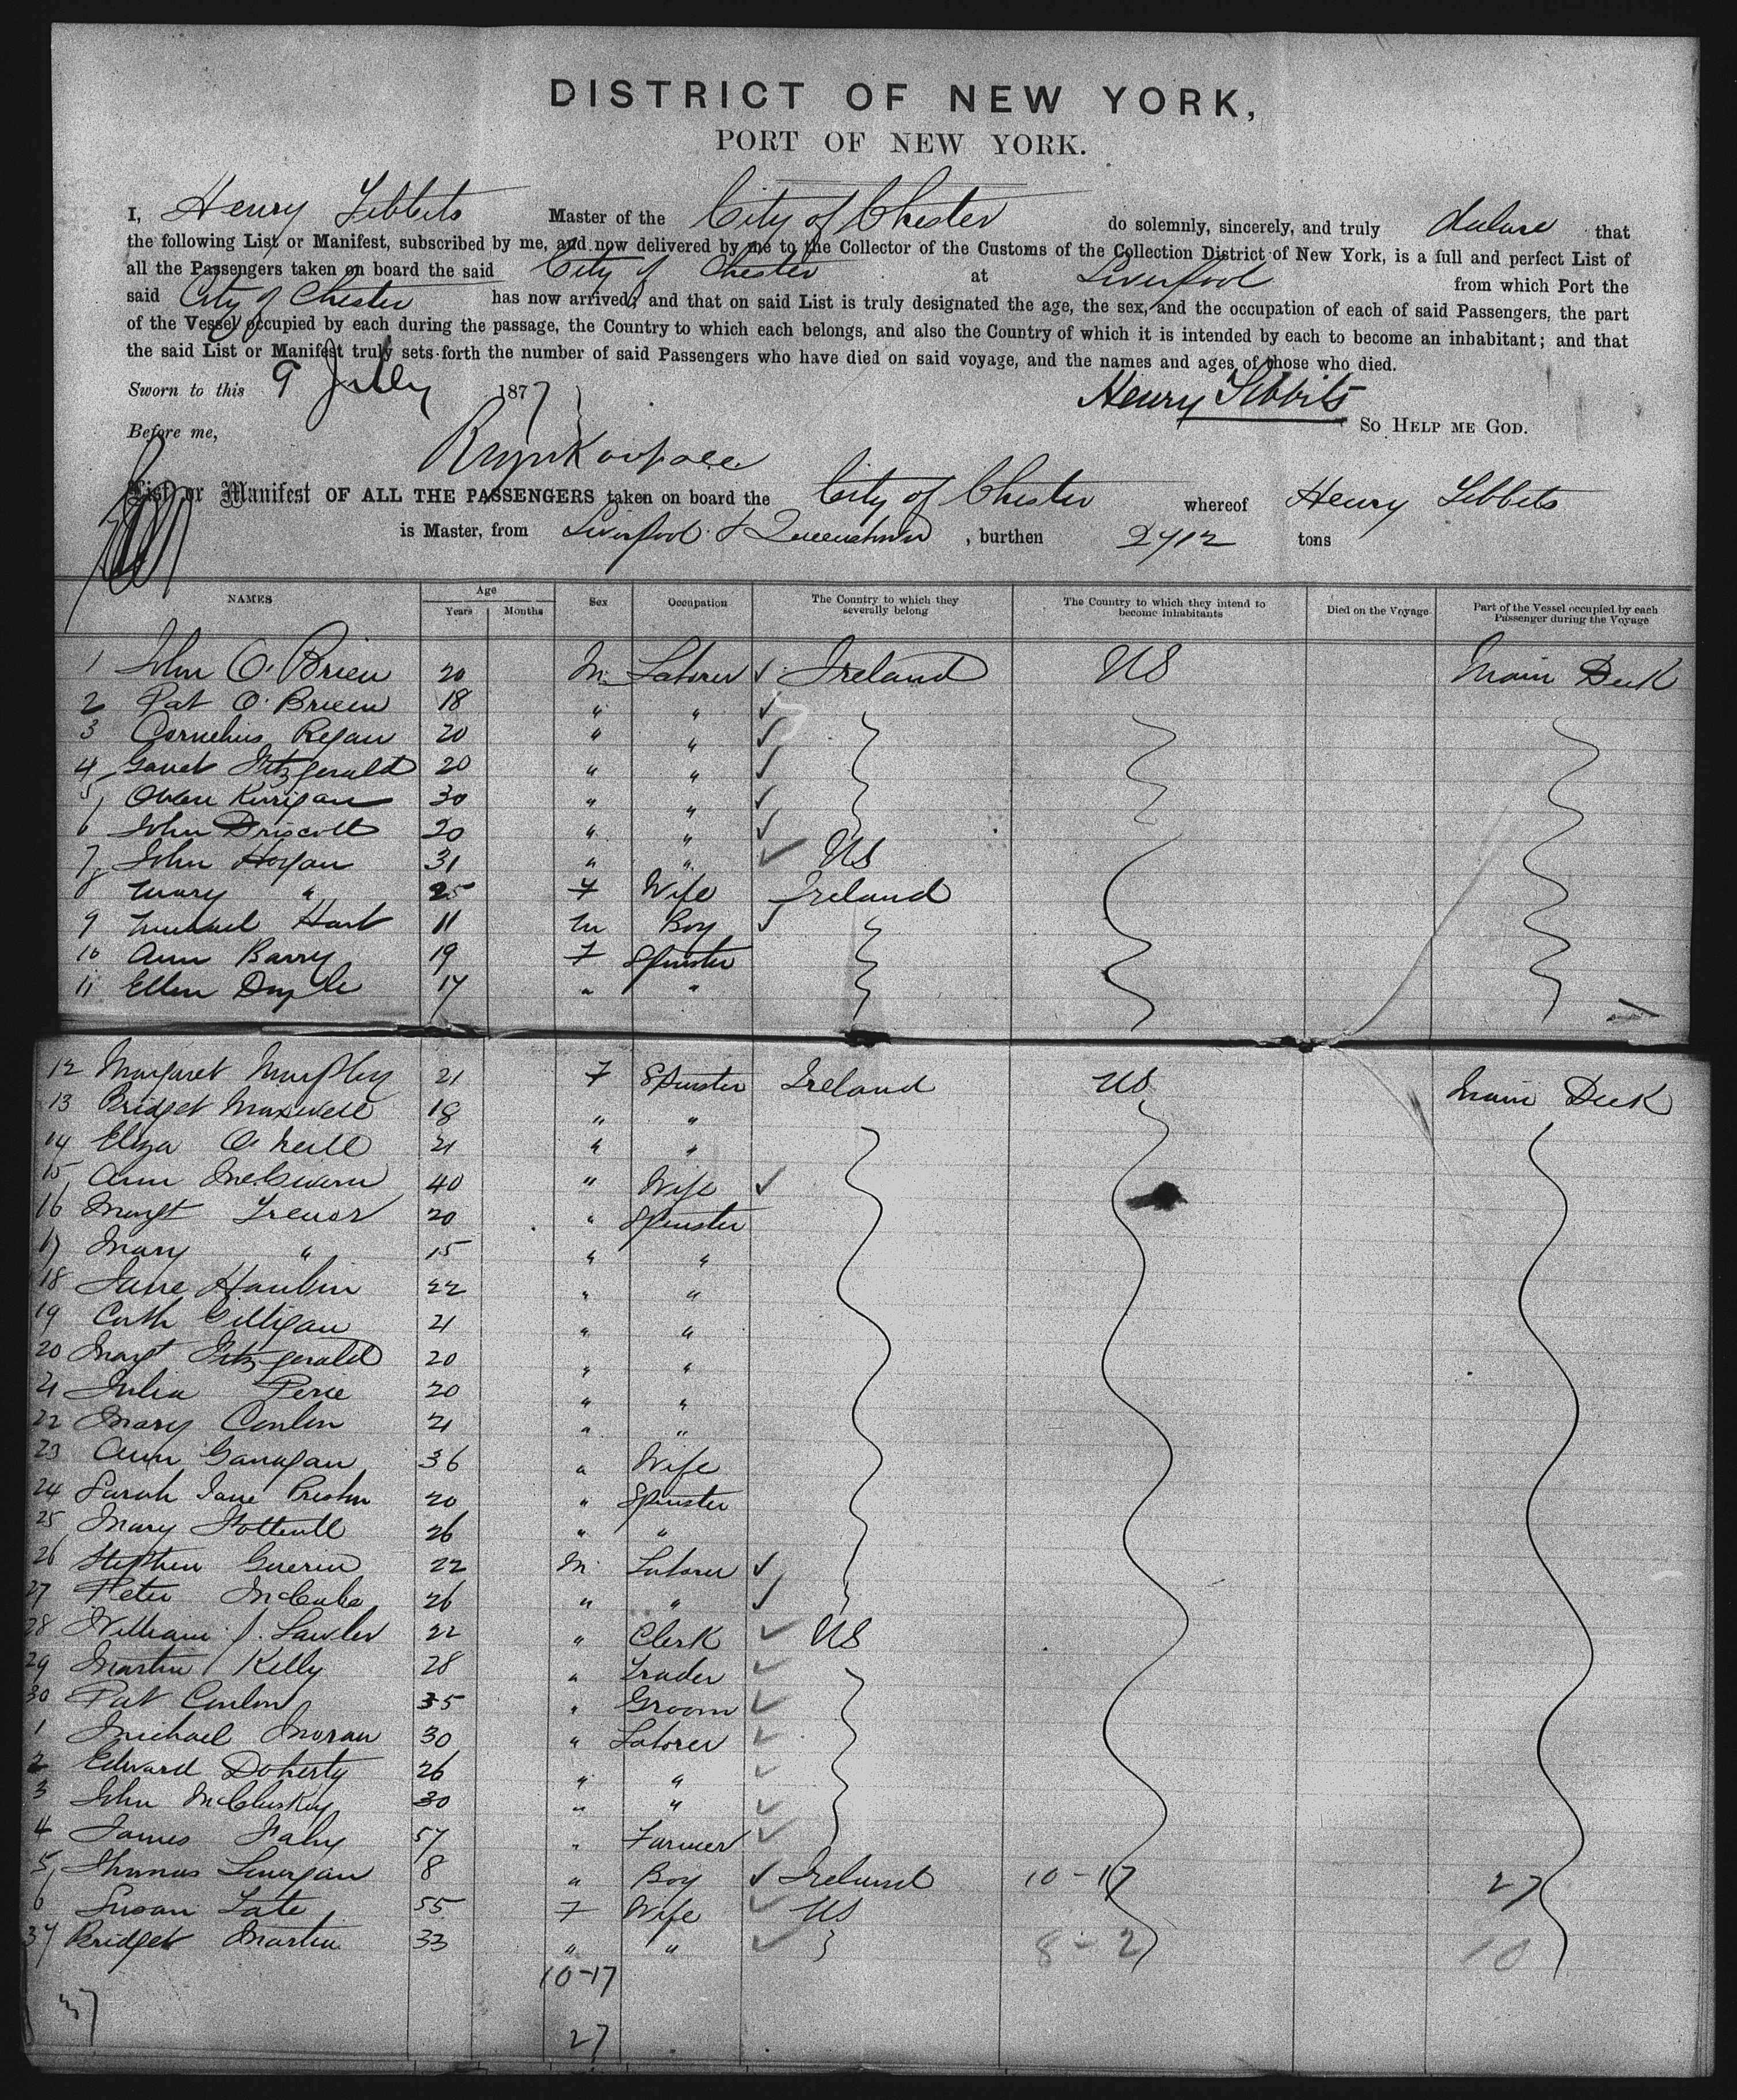 DISTRICT OF NEW YORK,
PORT OF NEW YORK.
I, Henry Tibbits Master of the City of Chester do solemnly, sincerely, and truly declare that
the following List or Manifest, subscribed by me, and now delivered by me to the Collector of the Customs of the Collection District of New York, is a full and perfect List of
all the Passengers taken on board the said City of Chester at Liverpool from which Port the
said City of Chester has now arrived; and that on said List is truly designated the age, the sex, and the occupation of each of said Passengers, the part
of the Vessel occupied by each during the passage, the Country to which each belongs, and also the Country of which it is intended by each to become an inhabitant; and that
the said List or Manifest truly sets forth the number of said Passengers who have died on said voyage, and the names and ages of those who died.
Sworn to this 9 July 1877 Henry Tibbits
So Help me God.
Before me,
List or Manifest OF ALL THE PASSENGERS taken on board the City of Chester whereof Henry Tibbits
is Master, from Liverpool & Queenstown, burthen 2412 tons
NAMES Age Years Months Sex Occupation The Country to which they severally belong The Country to which they intend to become inhabitants Died on the Voyage Part of the Vessel occupied by each Passenger during the Voyage
1 John O'Brien 20 M Laborer ✓ Ireland US Main Deck
2 Pat O'Brien 18 " " ✓
3 Cornelius Regan 20 " " ✓
4 Garret Fitzgerald 20 " " ✓
5 Owen Kerrigan 30 " " ✓
6 John Driscoll 20 " " ✓
7 John Hogan 31 " " ✓ US
8 Mary " 25 F Wife Ireland
9 Michael Hart 11 M Boy ✓
10 Ann Barry 19 F Spinster
11 Ellen Doyle 17 " "
12 Margaret Murphy 21 F Spinster Ireland US Main Deck
13 Bridget Maxwell 18 " "
14 Eliza O'Neill 21 " "
15 Ann 40 " Wife ✓
16 Margt Trenor 20 " Spinster
17 Mary " 15 " "
18 Jane Hanlon 22 " "
19 Cath Gilligan 21 " "
20 Margt Fitzgerald 20 " "
21 Julia 20 " "
22 Mary Conlon 21 " "
23 Ann Garragan 36 " Wife
24 Sarah Jane Preston 20 " Spinster
25 Mary 26 " "
26 Stephen Guerin 22 M Laborer ✓
27 Peter McCabe 26 " " ✓
28 William J. Lawler 22 " Clerk ✓ US
29 Martin Kelly 28 " Trader ✓
30 Pat Conlon 35 " Groom ✓
1 Michael Moran 30 " Laborer ✓
2 Edward Doherty 26 " " ✓
3 John McCluskey 30 " " ✓
4 James Fahy 57 " Farmer ✓
5 Thomas Lonergan 8 " Boy ✓ Ireland 10-17 27
6 Susan Tate 55 F Wife ✓ US
37 Bridget Martin 33 " " ✓ 8-2 10
10-17
37
27